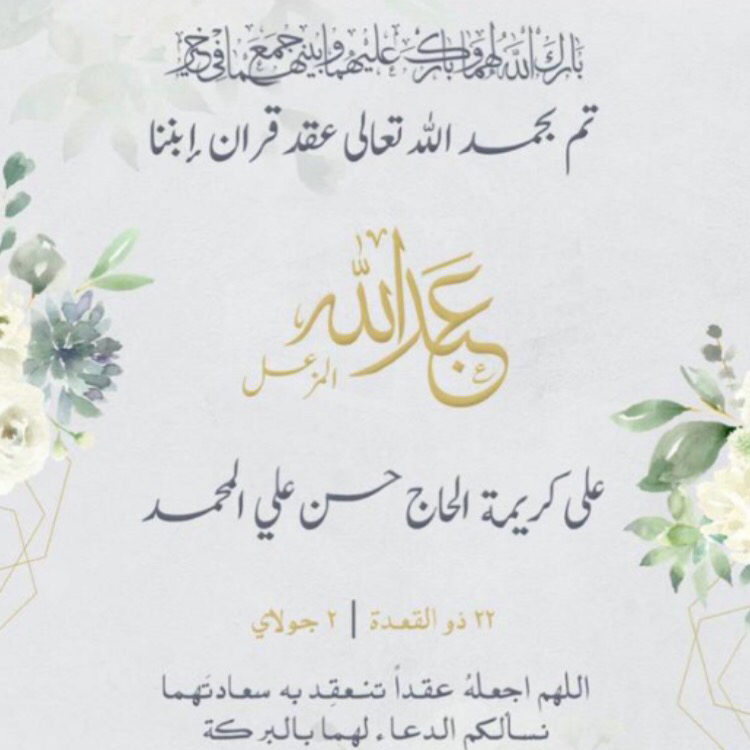 بارك الله لهما وبارك عليهما وجمع بينهما في خير
تم بحمد الله تعالى عقد قران إبننا
عبدالله
المزعل
على كريمة الحاج حسن علي المحمد
٢٢ ذو القعدة | ٢ جولاي
اللهم اجعلهُ عقداً تنعقِد به سعادتَهما
نسألكم الدعاء لهما بالبركة